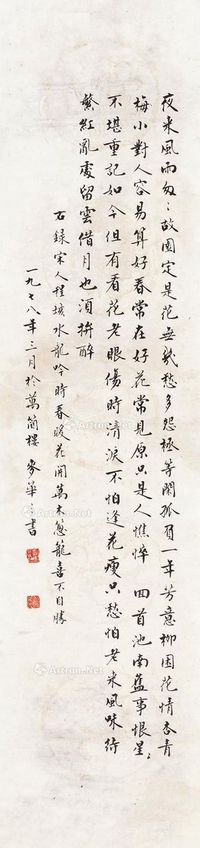 夜来風雨匆〻故園定是花無幾愁多怨極等閑孤負一年芳意柳困花情杏青
梅小對人容易算好春常在好花常見原只是人憔悴 回首池南舊事恨星〻
不堪重記如今但有看花老眼傷時清淚不怕逢花瘦只愁怕老来風味待
繁紅亂處留雲借月也須拚醉
右錄宋人程垓水龍吟時春暖花開萬木蔥籠喜不自勝
一九七八年三月於萬簡樓 家華書